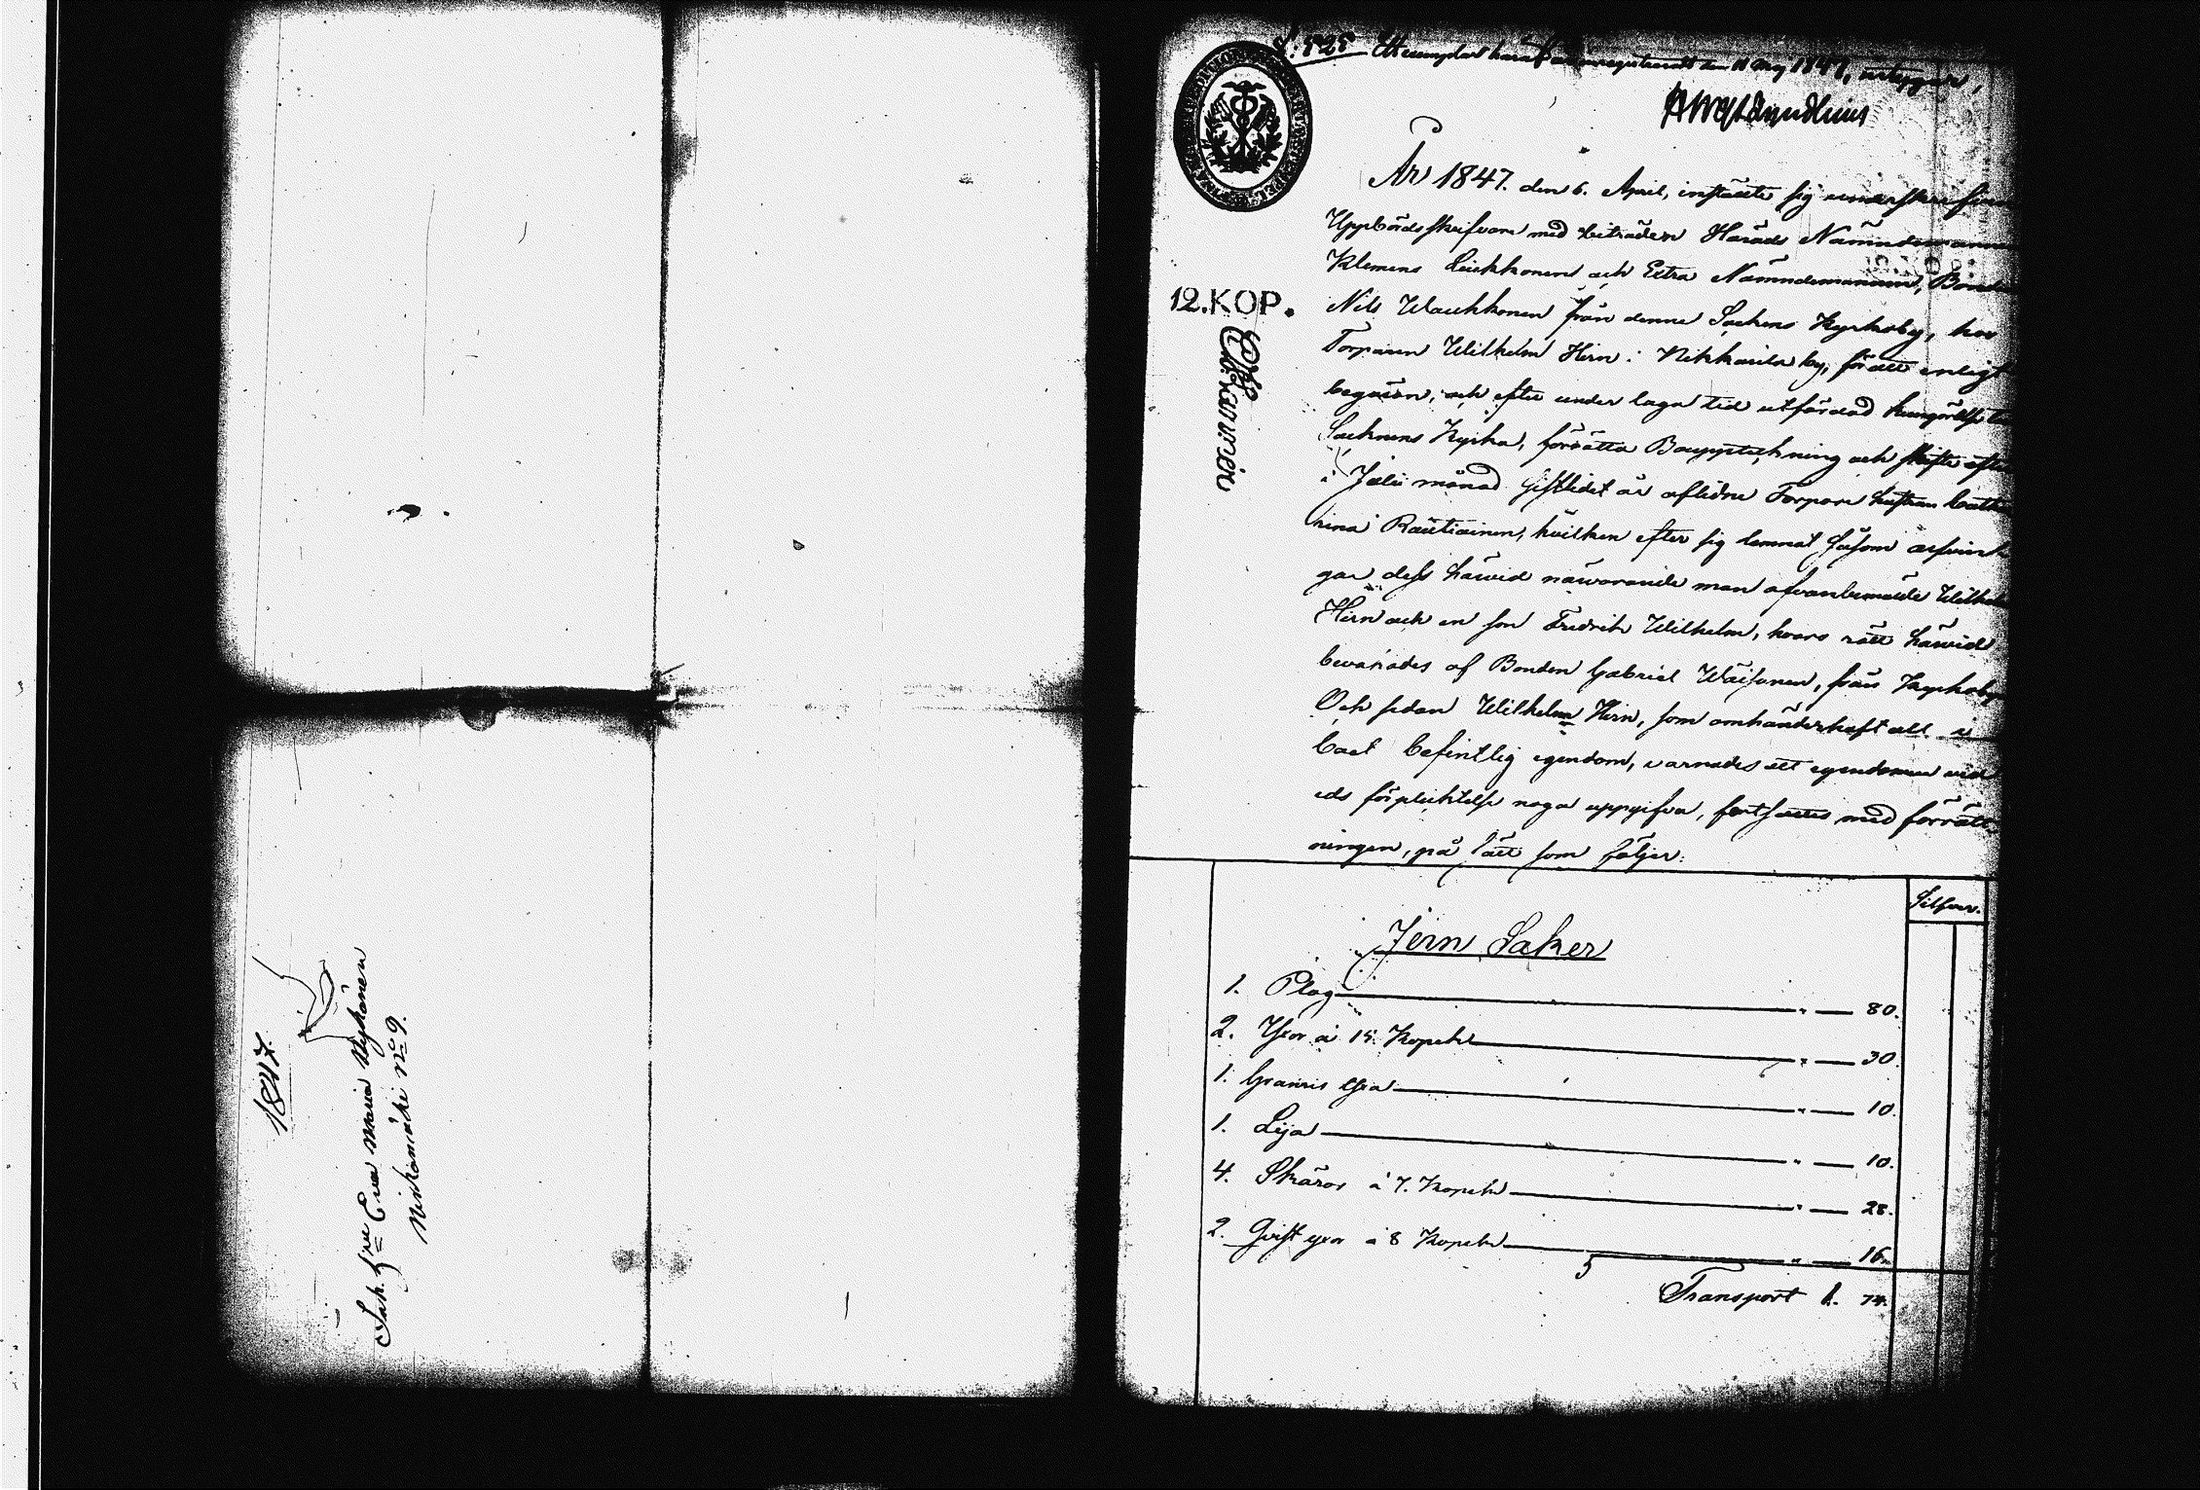 1847.
Enk. hus Eva Maria Nykänen
Nirkomäki No 9.
S: 525 Ett exemplar häraf inregistreradt den 11 Maj 1847, intygar,
12. KOP.
År 1847. den 6. April, instälte sig underskrifven
Uppbördsskrifvare med biträden Härads Nämndemannen
Klemens Leikkonen och Extra Nämndemannen, Bonden
Nils Waukkonen från denne Sockens Kyrkoby, hos
Torparen Wilhelm Hirn i Nikkarila by, för att enligt
begäran, och efter under laga tid utfärdad kungörelse
Socknens Kyrka, förrätta Bouppteckning och skifte efter
i Julii månad sistledet år aflidne Torpare hustrun Catha
rina Rautiainen, hvilken efter sig lemnat såsom arfvin
gar dess härvid närvarande man ofvanbemälde Wilhelm
Hirn och en son Fredrik Wilhelm, hvars rätt härvid
bevakades af Bonden Gabriel Wäisänen, från Kyrkoby
Och sedan Wilhelm Hirn, som omhänderhaft all i
boet befintlig egendom, varnades att egendomen vid
eds förplicktelse noga uppgifva, fortsattes med förrätt
ningen, på sätt som följer:
Silfver.
Jern Saker
1. Plog " — 80.
2. Yxor á 15. Kopek " — 30.
1. Granris yxa " — 10.
1. Lija " — 10.
4. Skäror á 7. Kopek " — 28.
2. Qvist yxor á 8 Kopek " — 16.
Transport 1. 74.